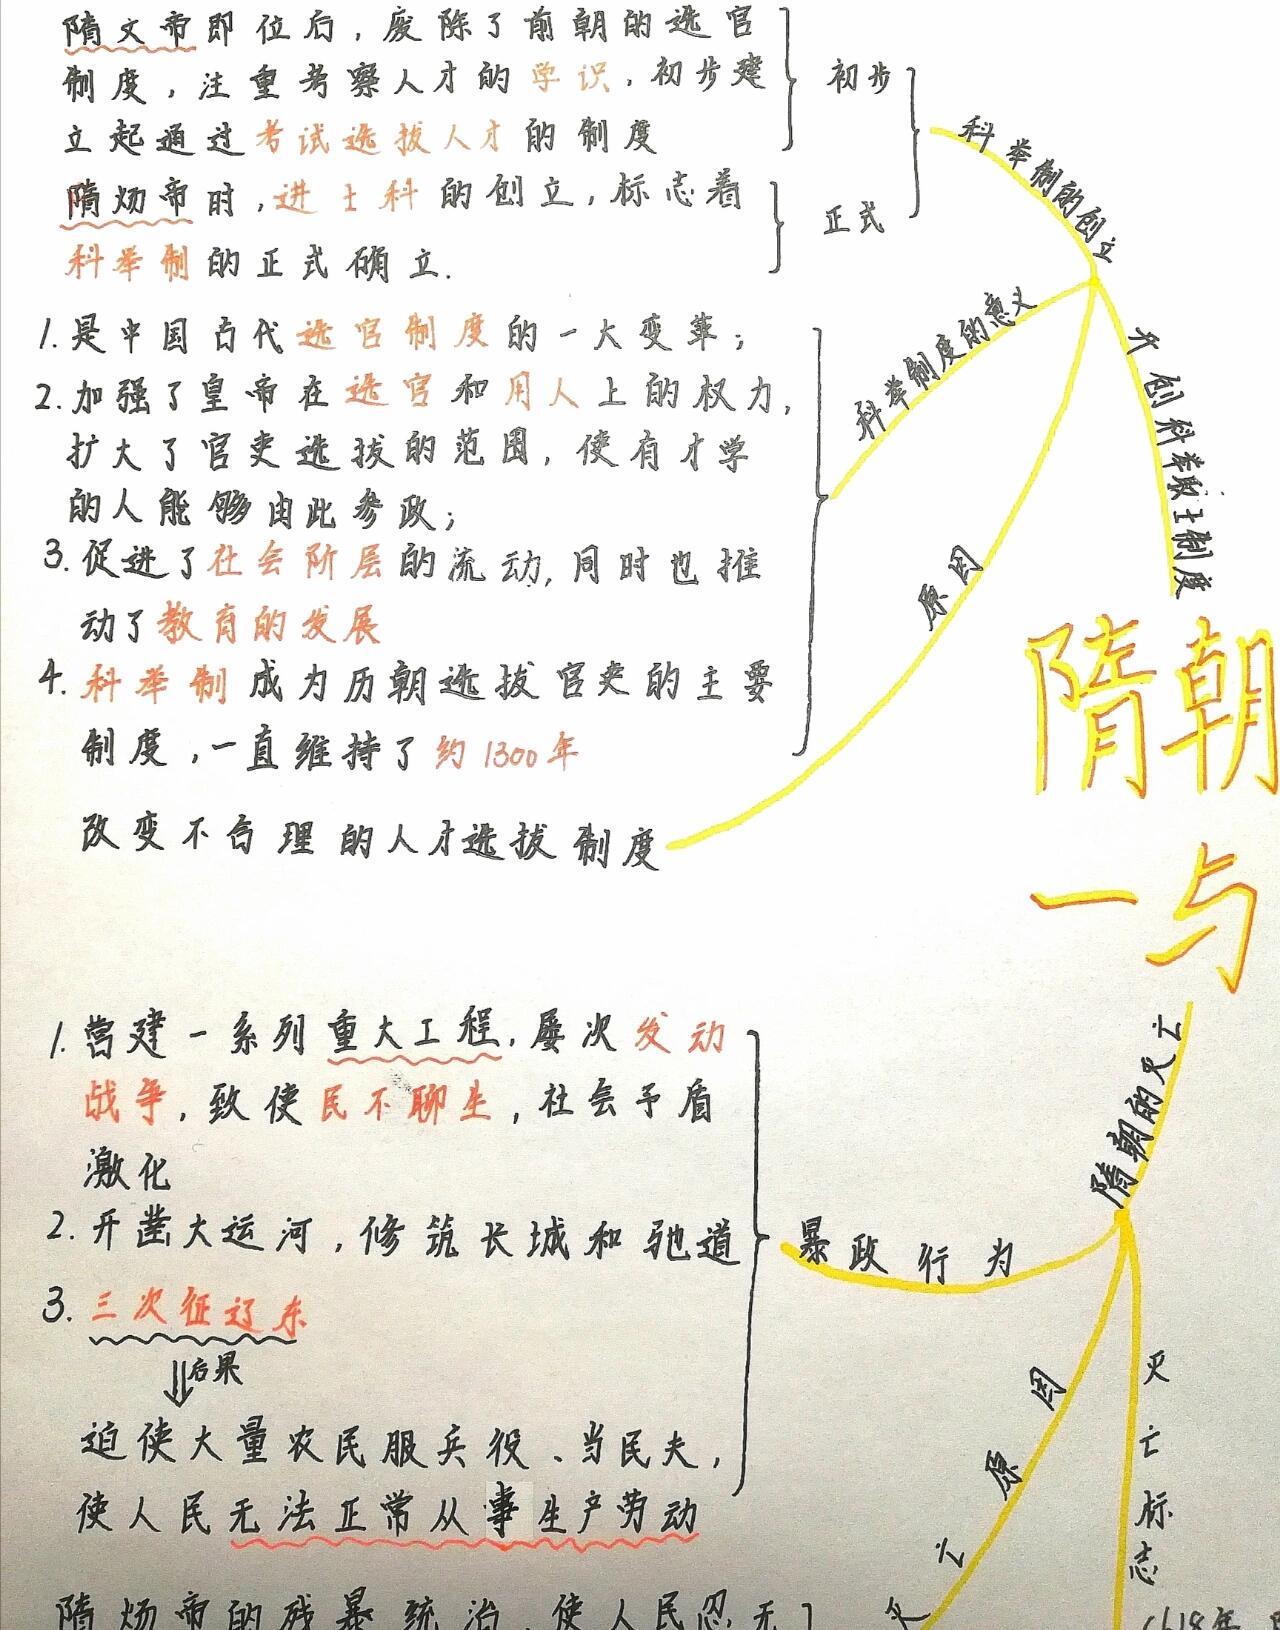 隋文帝即位后，废除了前朝的选官
制度，注重考察人才的学识，初步建
立起通过考试选拔人才的制度
初步
隋炀帝时，进士科的创立，标志着
科举制的正式确立.
正式
科举制的创立
1.是中国古代选官制度的一大变革；
2.加强了皇帝在选官和用人上的权力，
扩大了官吏选拔的范围，使有才学
的人能够由此参政；
3.促进了社会阶层的流动，同时也推
动了教育的发展
4.科举制成为历朝选拔官吏的主要
制度，一直维持了约1300年
科举制度的意义
改变不合理的人才选拔制度
原因
开创科举取士制度
隋朝
一与
1.营建一系列重大工程，屡次发动
战争，致使民不聊生，社会矛盾
激化
2.开凿大运河，修筑长城和驰道
3.三次征辽东
后果
迫使大量农民服兵役、当民夫，
使人民无法正常从事生产劳动
暴政行为
隋朝的灭亡
灭亡原因
灭亡标志
隋炀帝的残暴统治，使人民忍无
618年